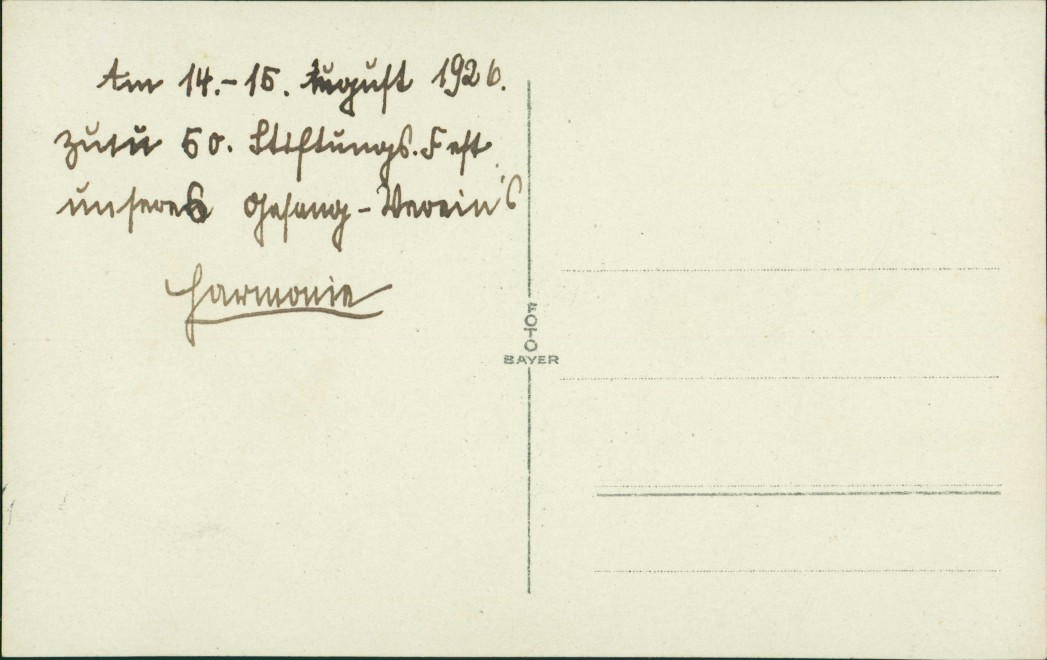 Am 14.-15. August 1926.
zum 50. Stiftungs.Fest
unseres Gesang-Verein's
Harmonie
FOTO
BAYER